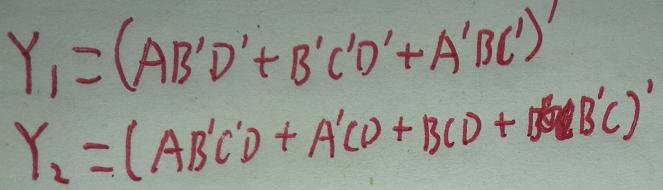 Y₁=(AB'D'+B'C'D'+A'BC')'
Y₂=(AB'C'D+A'CD+BCD+B'C)'